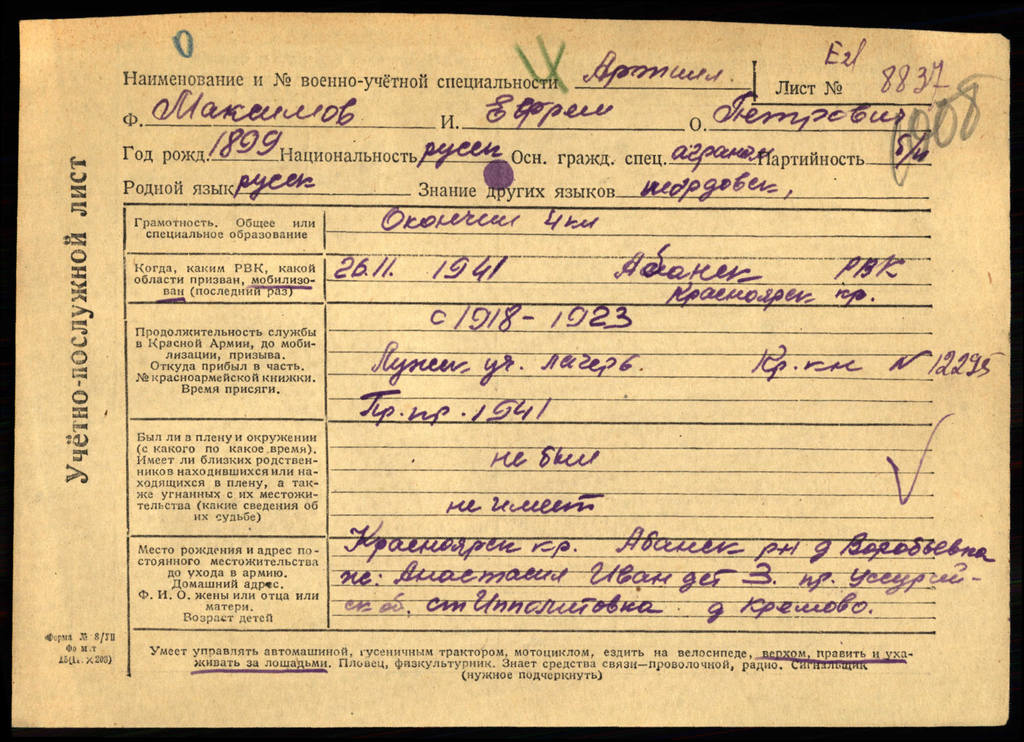 О
Наименование и № военно-учётной специальности Артилл.
Лист № 8837
Ф. Максимов И. Ефрем О. Петрович
Год рожд. 1899 Национальность русск Осн. гражд. спец. агроном Партийность б/п
Родной язык русск Знание других языков мордовск,
Учётно-послужной лист
Грамотность. Общее или специальное образование
Окончил 4 кл
Когда, каким РВК, какой
области призван, мобилизо-
ван (последний раз)
26.11. 1941 Абанск РВК
Красноярск кр.
Продолжительность службы
в Красной Армии, до моби-
лизации, призыва.
Откуда прибыл в часть.
№ красноармейской книжки.
Время присяги.
с 1918 - 1923
Лужск уч. лагерь. Кр. кн № 12295
Пр. пр. 1941
Был ли в плену и окружении
(с какого по какое время).
Имеет ли близких родствен-
ников находившихся или на-
ходящихся в плену, а так-
же угнанных с их местожи-
тельства (какие сведения об
их судьбе)
не был
не имеет
Место рождения и адрес по-
стоянного местожительства
до ухода в армию.
Домашний адрес.
Ф. И. О. жены или отца или
матери.
Возраст детей
Красноярск кр. Абанск рн д Воробьевка
ж: Анастасия Иван дет 3. пр. Уссурий-
ск об. ст Ипполитовка д Кремово.
Форма № 8/УП
Формат
Умеет управлять автомашиной, гусеничным трактором, мотоциклом, ездить на велосипеде, верхом, править и уха-
живать за лошадьми. Пловец, физкультурник. Знает средства связи—проволочной, радио. Сигнальщик
(нужное подчеркнуть)